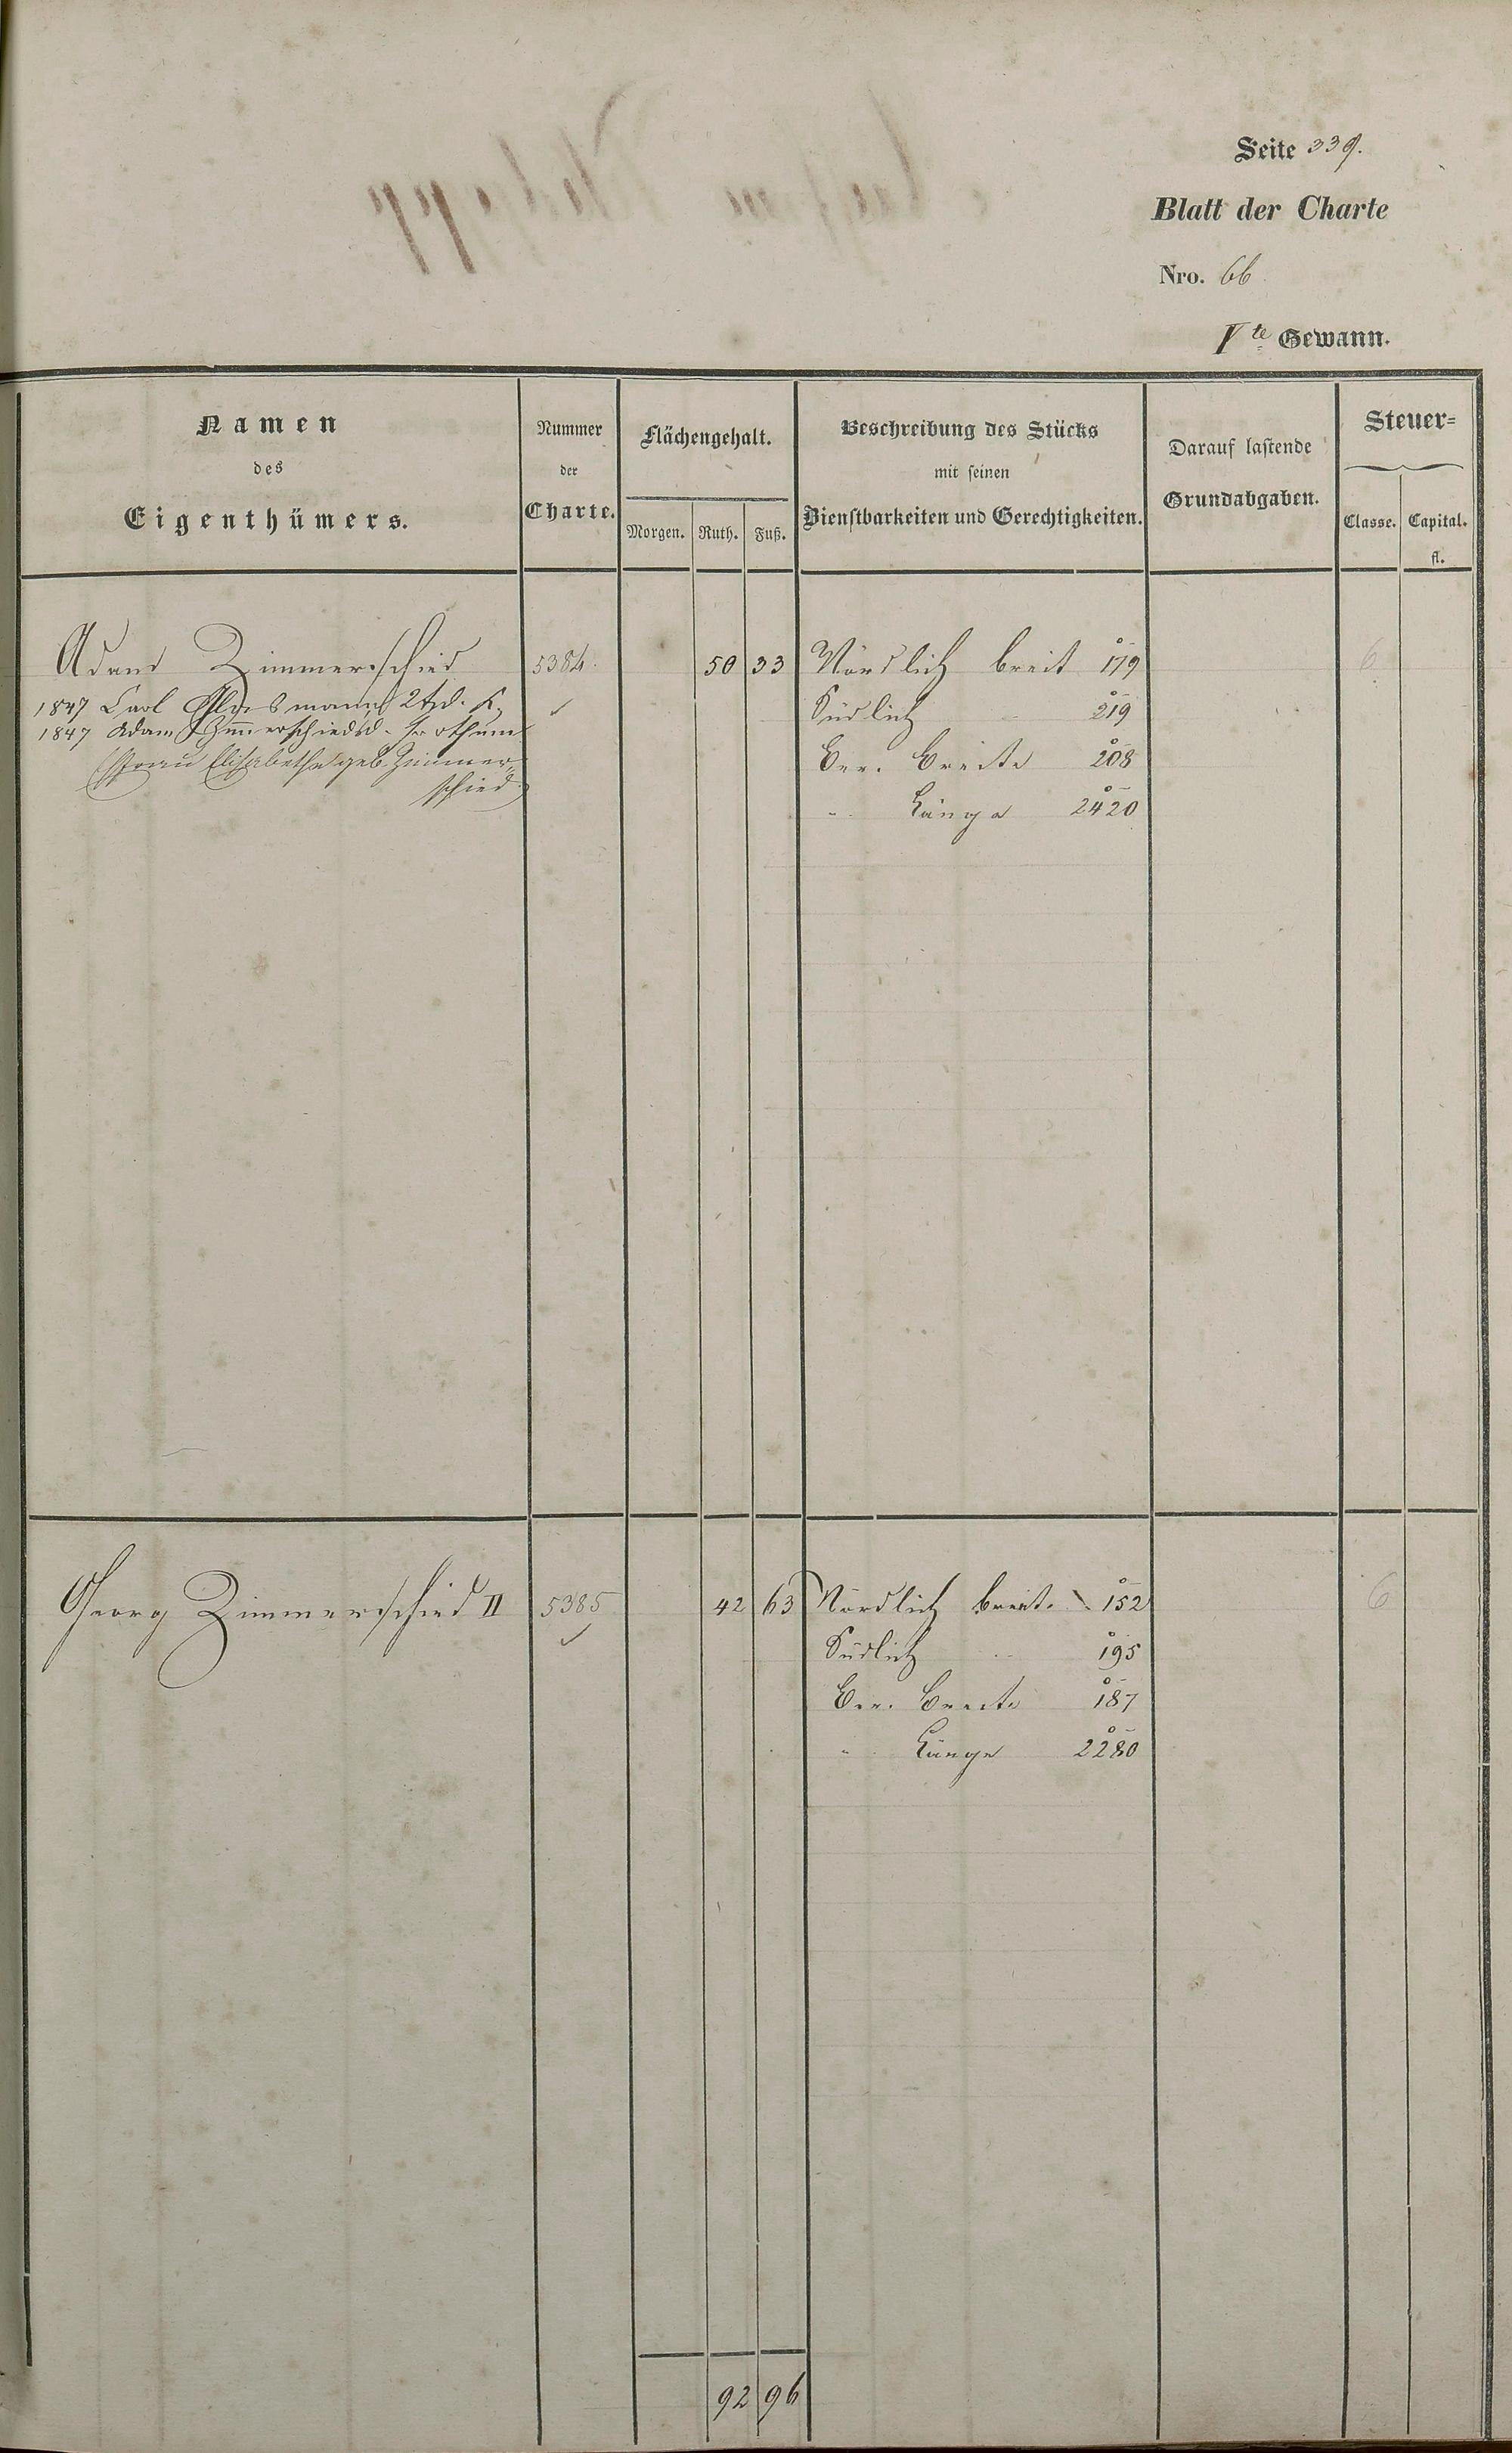 Seite 339.
Blatt der Charte
Nro. 66
Vte Gewann.
Namen
des
Eigenthümers.
Nummer
der
Charte.
Flächengehalt.
Morgen. Ruth. Fuß.
Beschreibung des Stücks
mit seinen
Dienstbarkeiten und Gerechtigkeiten.
Darauf lastende
Grundabgaben.
Steuer=
Classe. Capital.
fl.
Adam Zimmerschied 5384. 50 33 Nördlich breit 179 6
1847 Carl
Südlich 219
1847 Adam Zimmerschied
Frau Elisabetha geb. Zimmer=
Ber. Breite 208
schied
" Länge 2420
Georg Zimmerschied II 5385 42 63 Nördlich breit 152 6
Südlich " 195
Ber. Breite 187
" Länge 2280
92 96